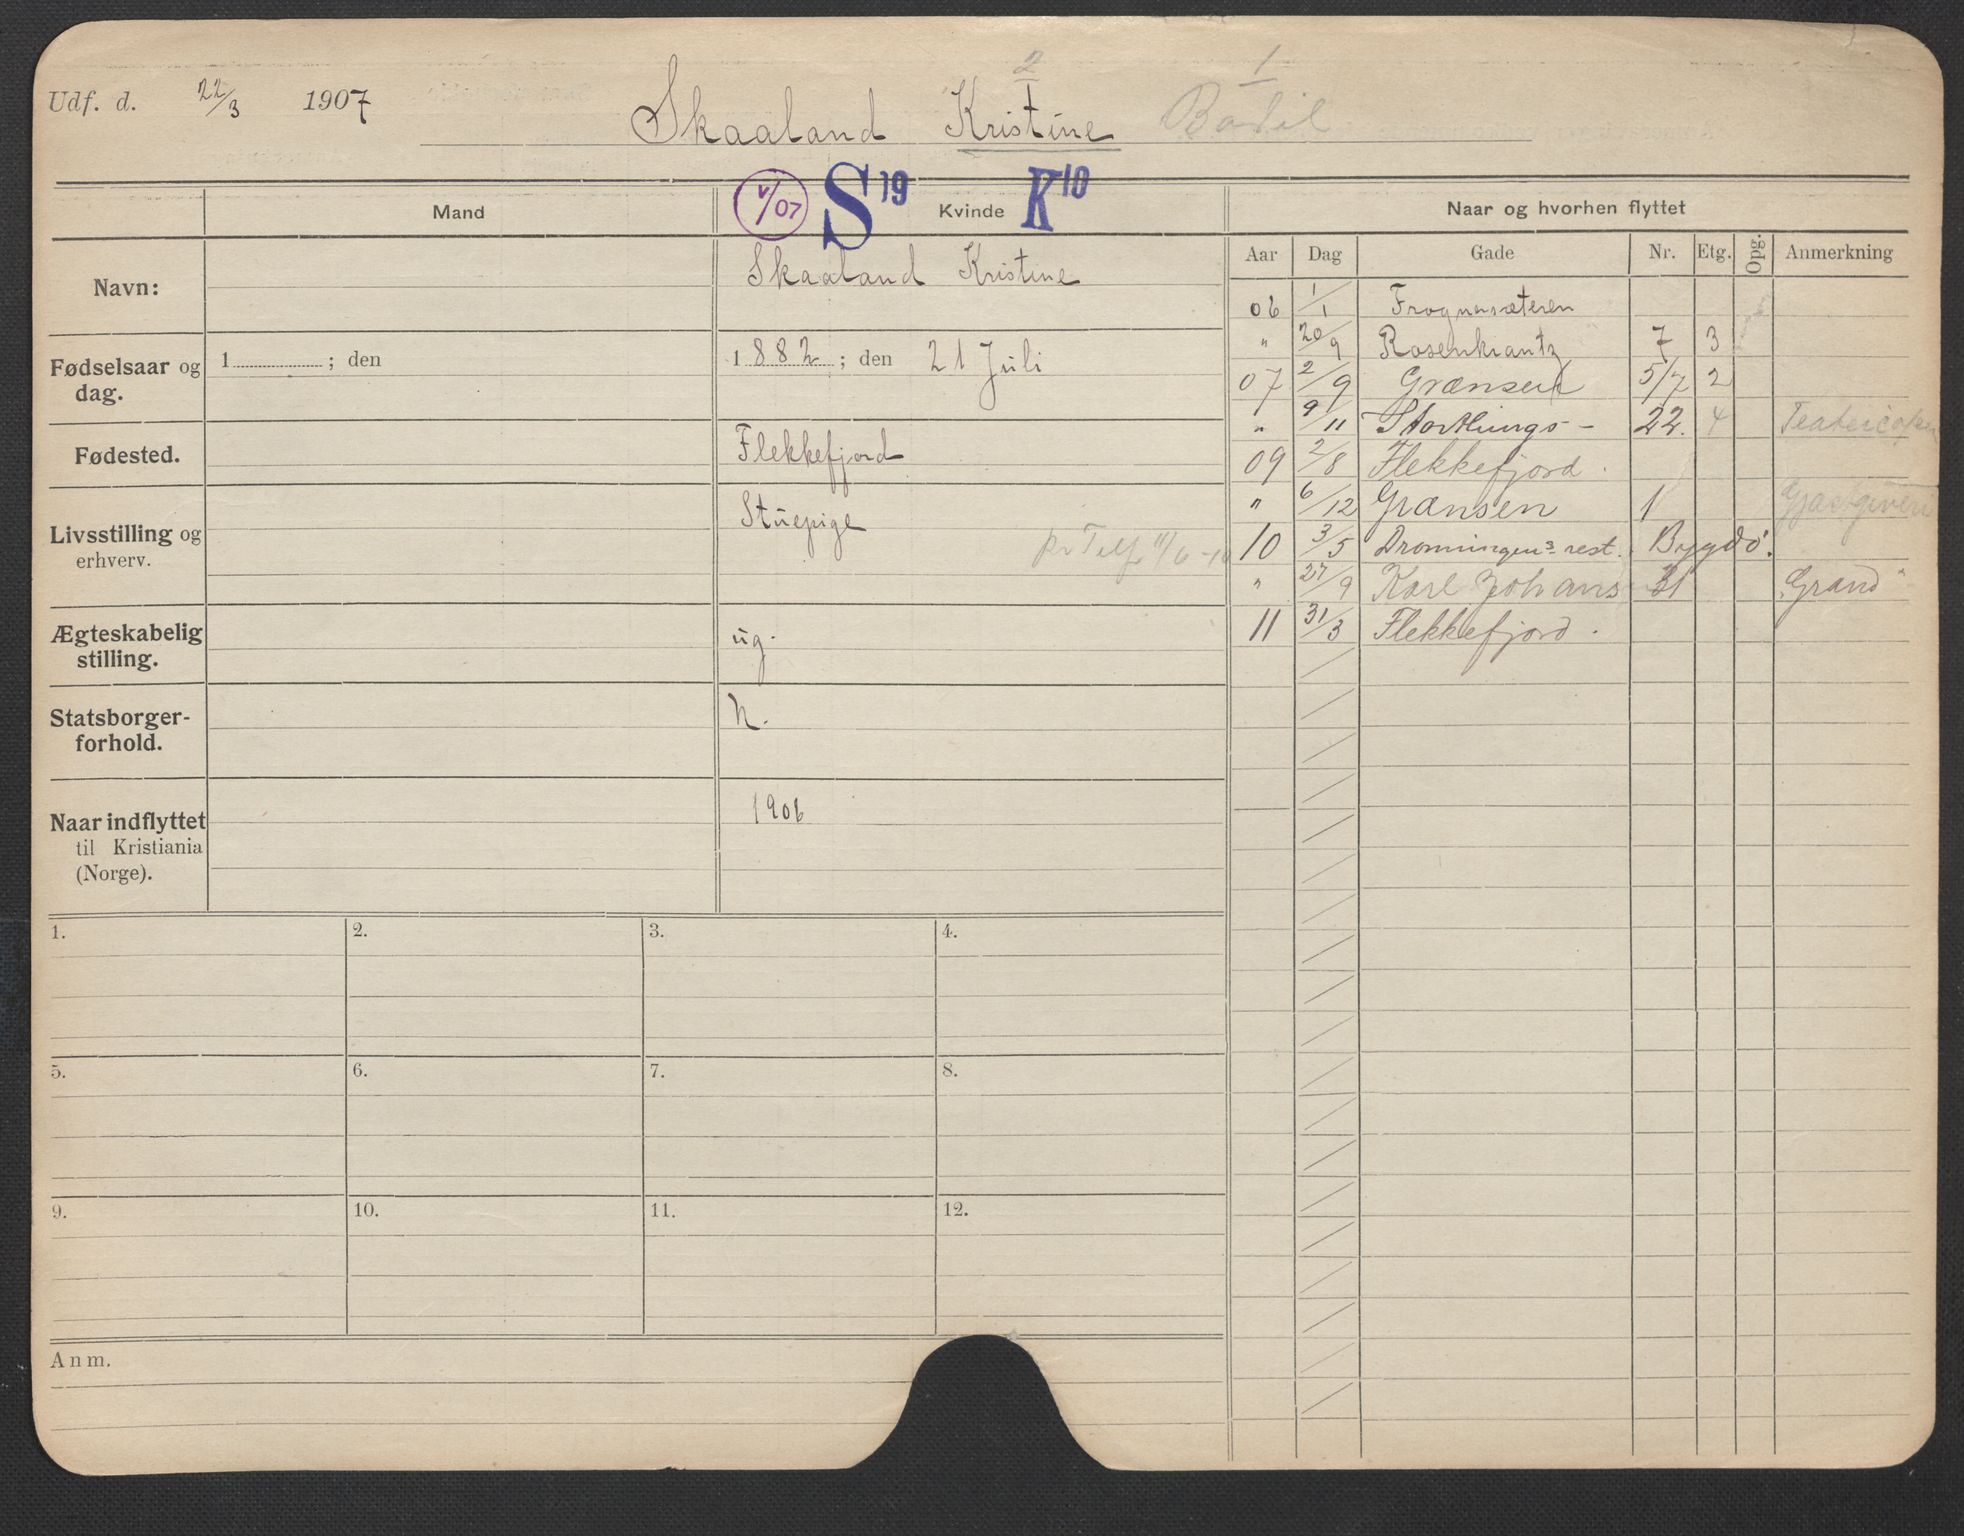 2 1
Udf. d. 22/3 1907 Skaaland Kristine Bodil
Mand V/07 S19 Kvinde K10 Naar og hvorhen flyttet
Aar Dag Gade Nr. Etg. Opg. Anmerkning
Navn: Skaaland Kristine
06 1/1 Frognersæteren
" 20/9 Rosenkrantz 7 3
Fødselsaar og dag. 1 ; den 1882 ; den 21 Juli
07 2/9 Grænsen 5/7 2
" 9/11 Stortlings- 22. 4
09 2/8 Flekkefjord.
Fødested. Flekkefjord
" 6/12 Grænsen 1 Gjæstgiveri
Livsstilling og erhverv. Stuepige pr Telf 11/6-10
10 3/5 Dronningens rest. Bygdö.
" 27/9 Karl Johans 31 "Grand"
11 31/3 Flekkefjord.
Ægteskabelig stilling. ug.
Statsborger-
forhold. N.
Naar indflyttet
til Kristiania
(Norge). 1906
1. 2. 3. 4.
5. 6. 7. 8.
9. 10. 11. 12.
Anm.